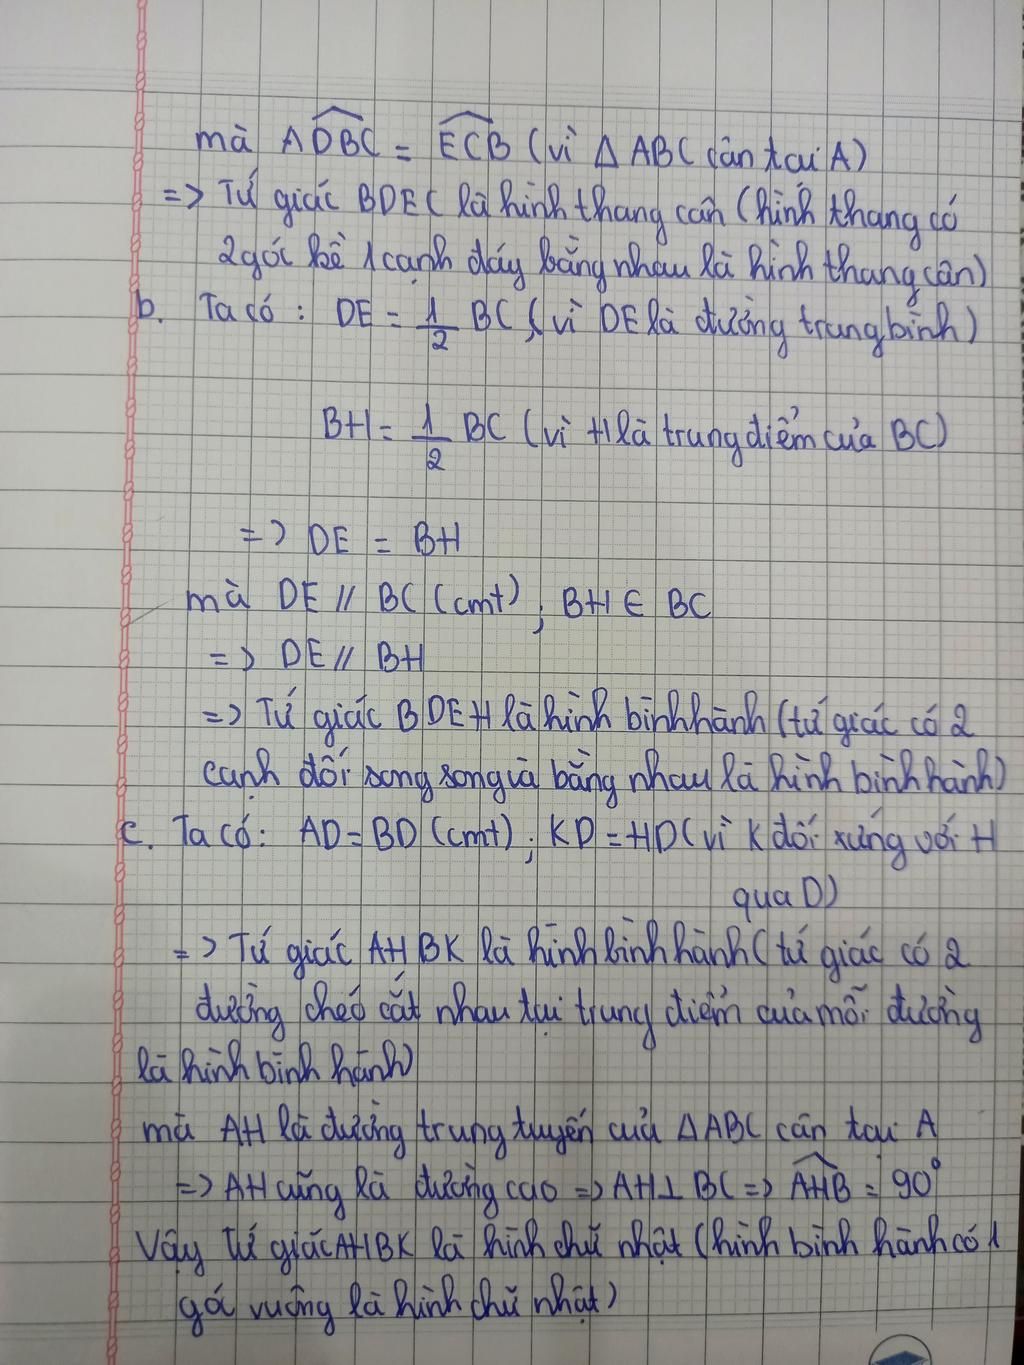 mà ADBC = ECB (vì Δ ABC cân tại A)
=> Tứ giác BDEC là hình thang cân (hình thang có
2 góc kề 1 cạnh đáy bằng nhau là hình thang cân)
b. Ta có : DE = 1/2 BC (vì DE là đường trung bình)
BH = 1/2 BC (vì H là trung điểm của BC)
=> DE = BH
mà DE // BC (cmt) ; BH ∈ BC
=> DE // BH
=> Tứ giác BDEH là hình bình hành (tứ giác có 2
cạnh đối song song và bằng nhau là hình bình hành)
c. Ta có: AD = BD (cmt) ; KD = HD (vì K đối xứng với H
qua D)
=> Tứ giác AHBK là hình bình hành (tứ giác có 2
đường chéo cắt nhau tại trung điểm của mỗi đường
là hình bình hành)
mà AH là đường trung tuyến của ΔABC cân tại A
=> AH cũng là đường cao => AH ⊥ BC => AHB = 90°
Vậy tứ giác AHBK là hình chữ nhật (hình bình hành có 1
góc vuông là hình chữ nhật)